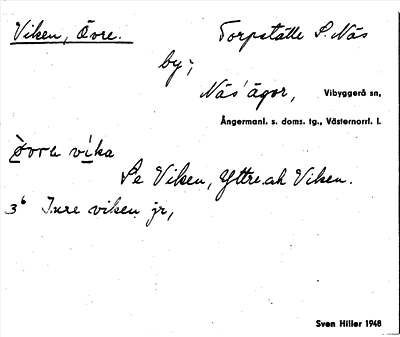 Viken, Övre. Torpställe S. Näs
by;
Näs' ägor, Vibyggerå sn,
Ångermanl. s. doms. tg., Västernorrl. l.
vika
Se Viken, Yttre och Viken.
3⁶ Inre viken jr,
Sven Hiller 1948